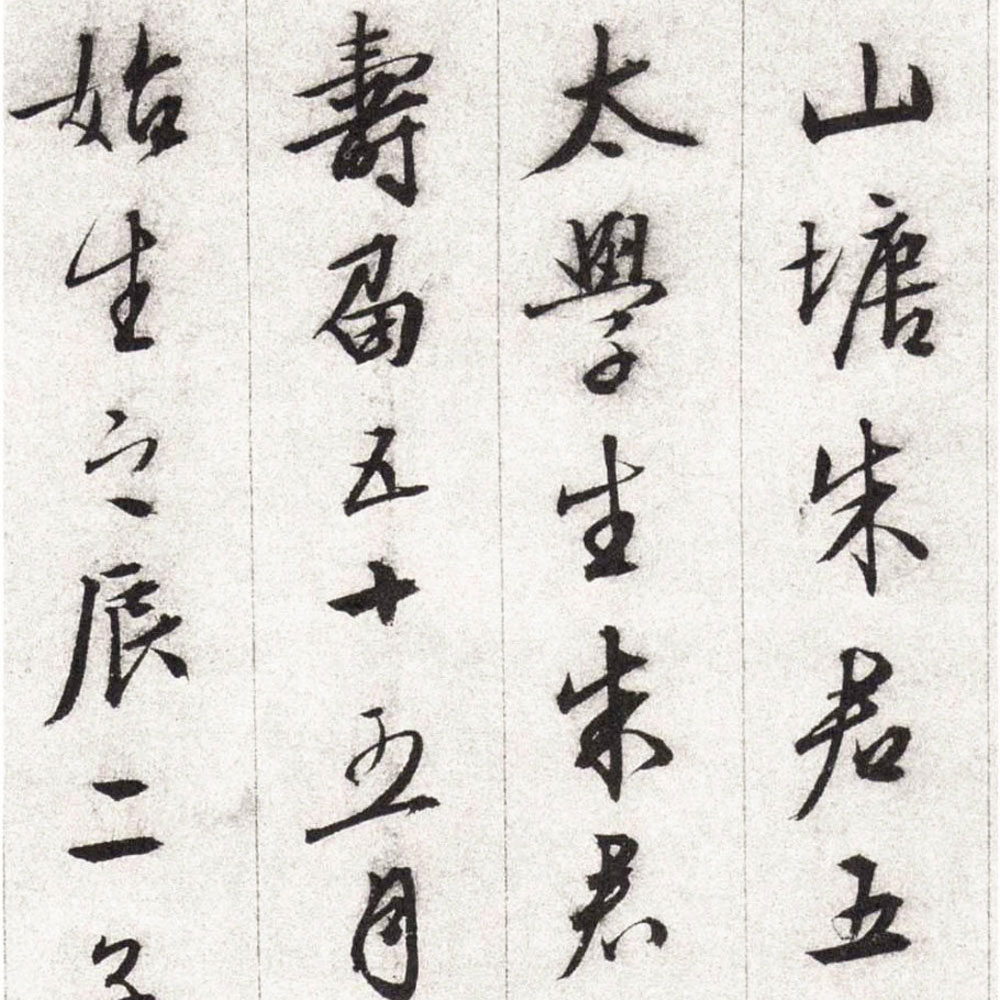 山塘朱君五
太學生朱君
壽届五十五月
始生之辰二子